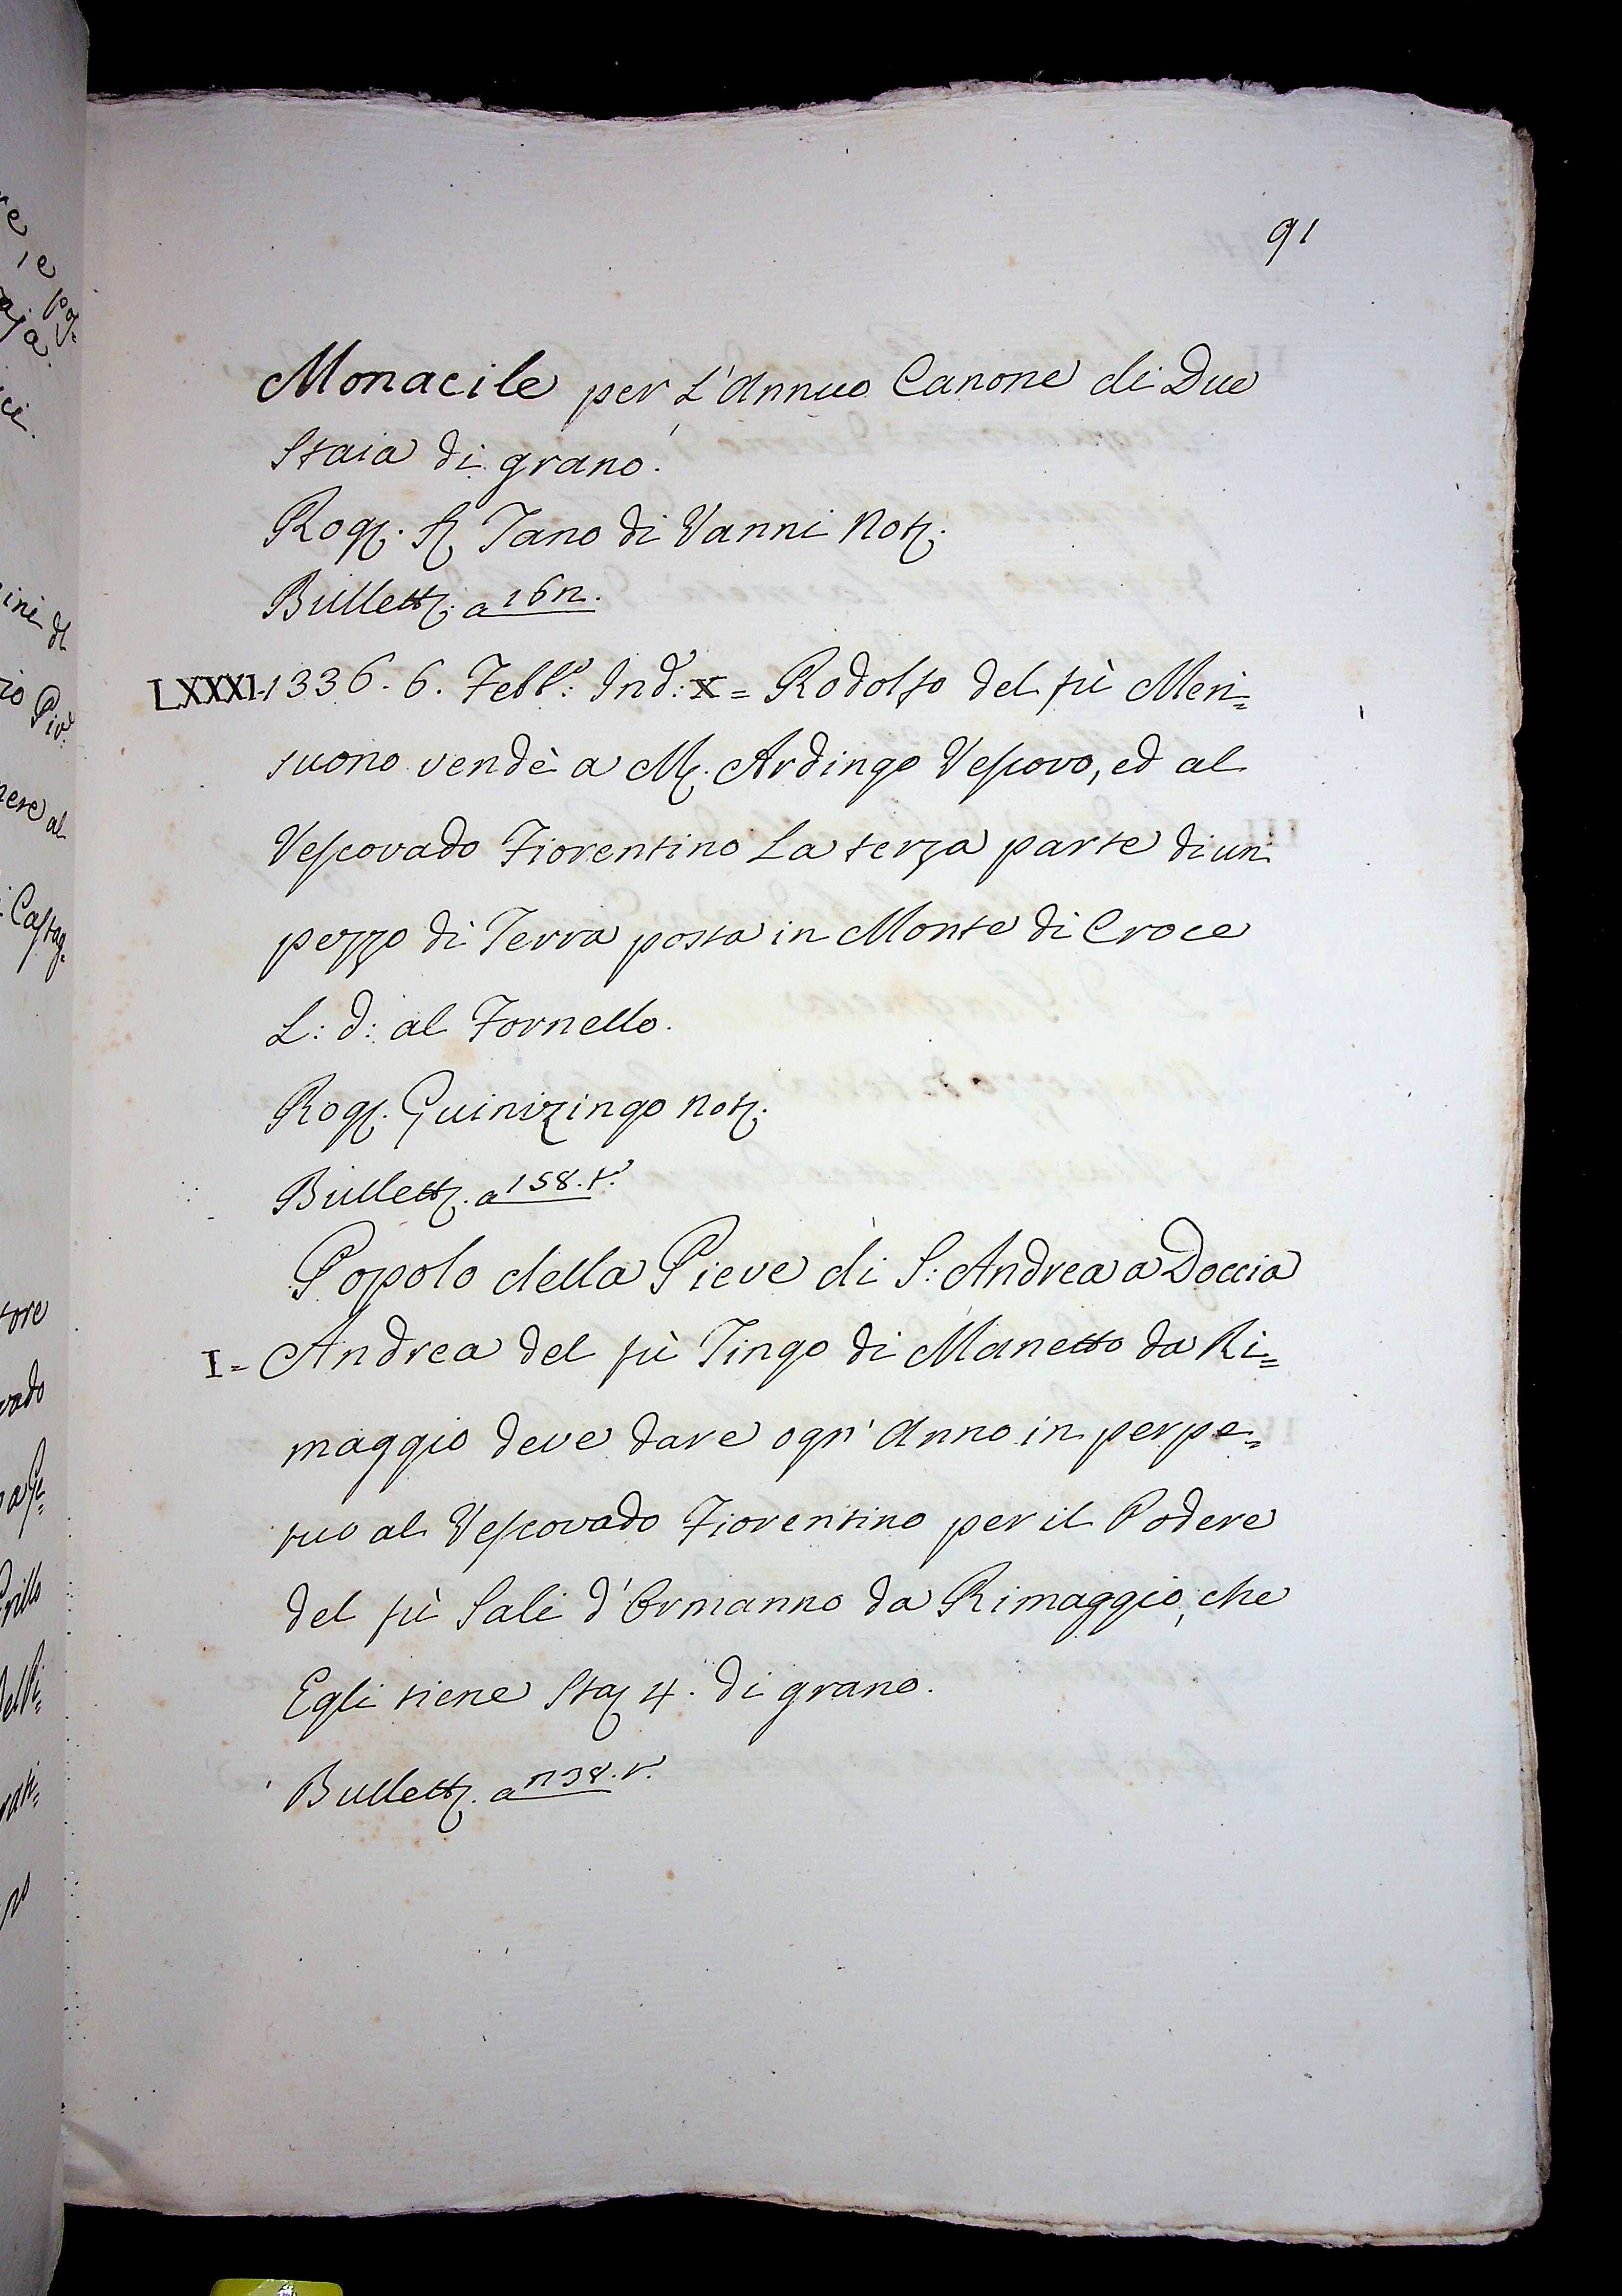 91
Monacile per L'Annuo Canone di Due
Staia di grano.
Rog. S. Tano di Vanni Not.
Bullett. a 162.
LXXXI. 1336. 6. Febb.º: Ind: X = Rodolfo del fù Meri=
tuono vendè a M. Ardingo Vescovo, ed al
Vescovado Fiorentino La terza parte di un
pezzo di Terra posta in Monte di Croce
L: d: al Fornello.
Rog. Guinizingo Not.
Bullett. a 158. t.º
Popolo della Pieve di S: Andrea a Doccia
I = Andrea del fù Tingo di Manetto da Ri=
maggio deve dare ogn' Anno in perpe=
tuo al Vescovado Fiorentino per il Podere
del fù Sali d'Ormanno da Rimaggio, che
Egli tiene Sta. 4. di grano.
Bullett. a 238. t.º